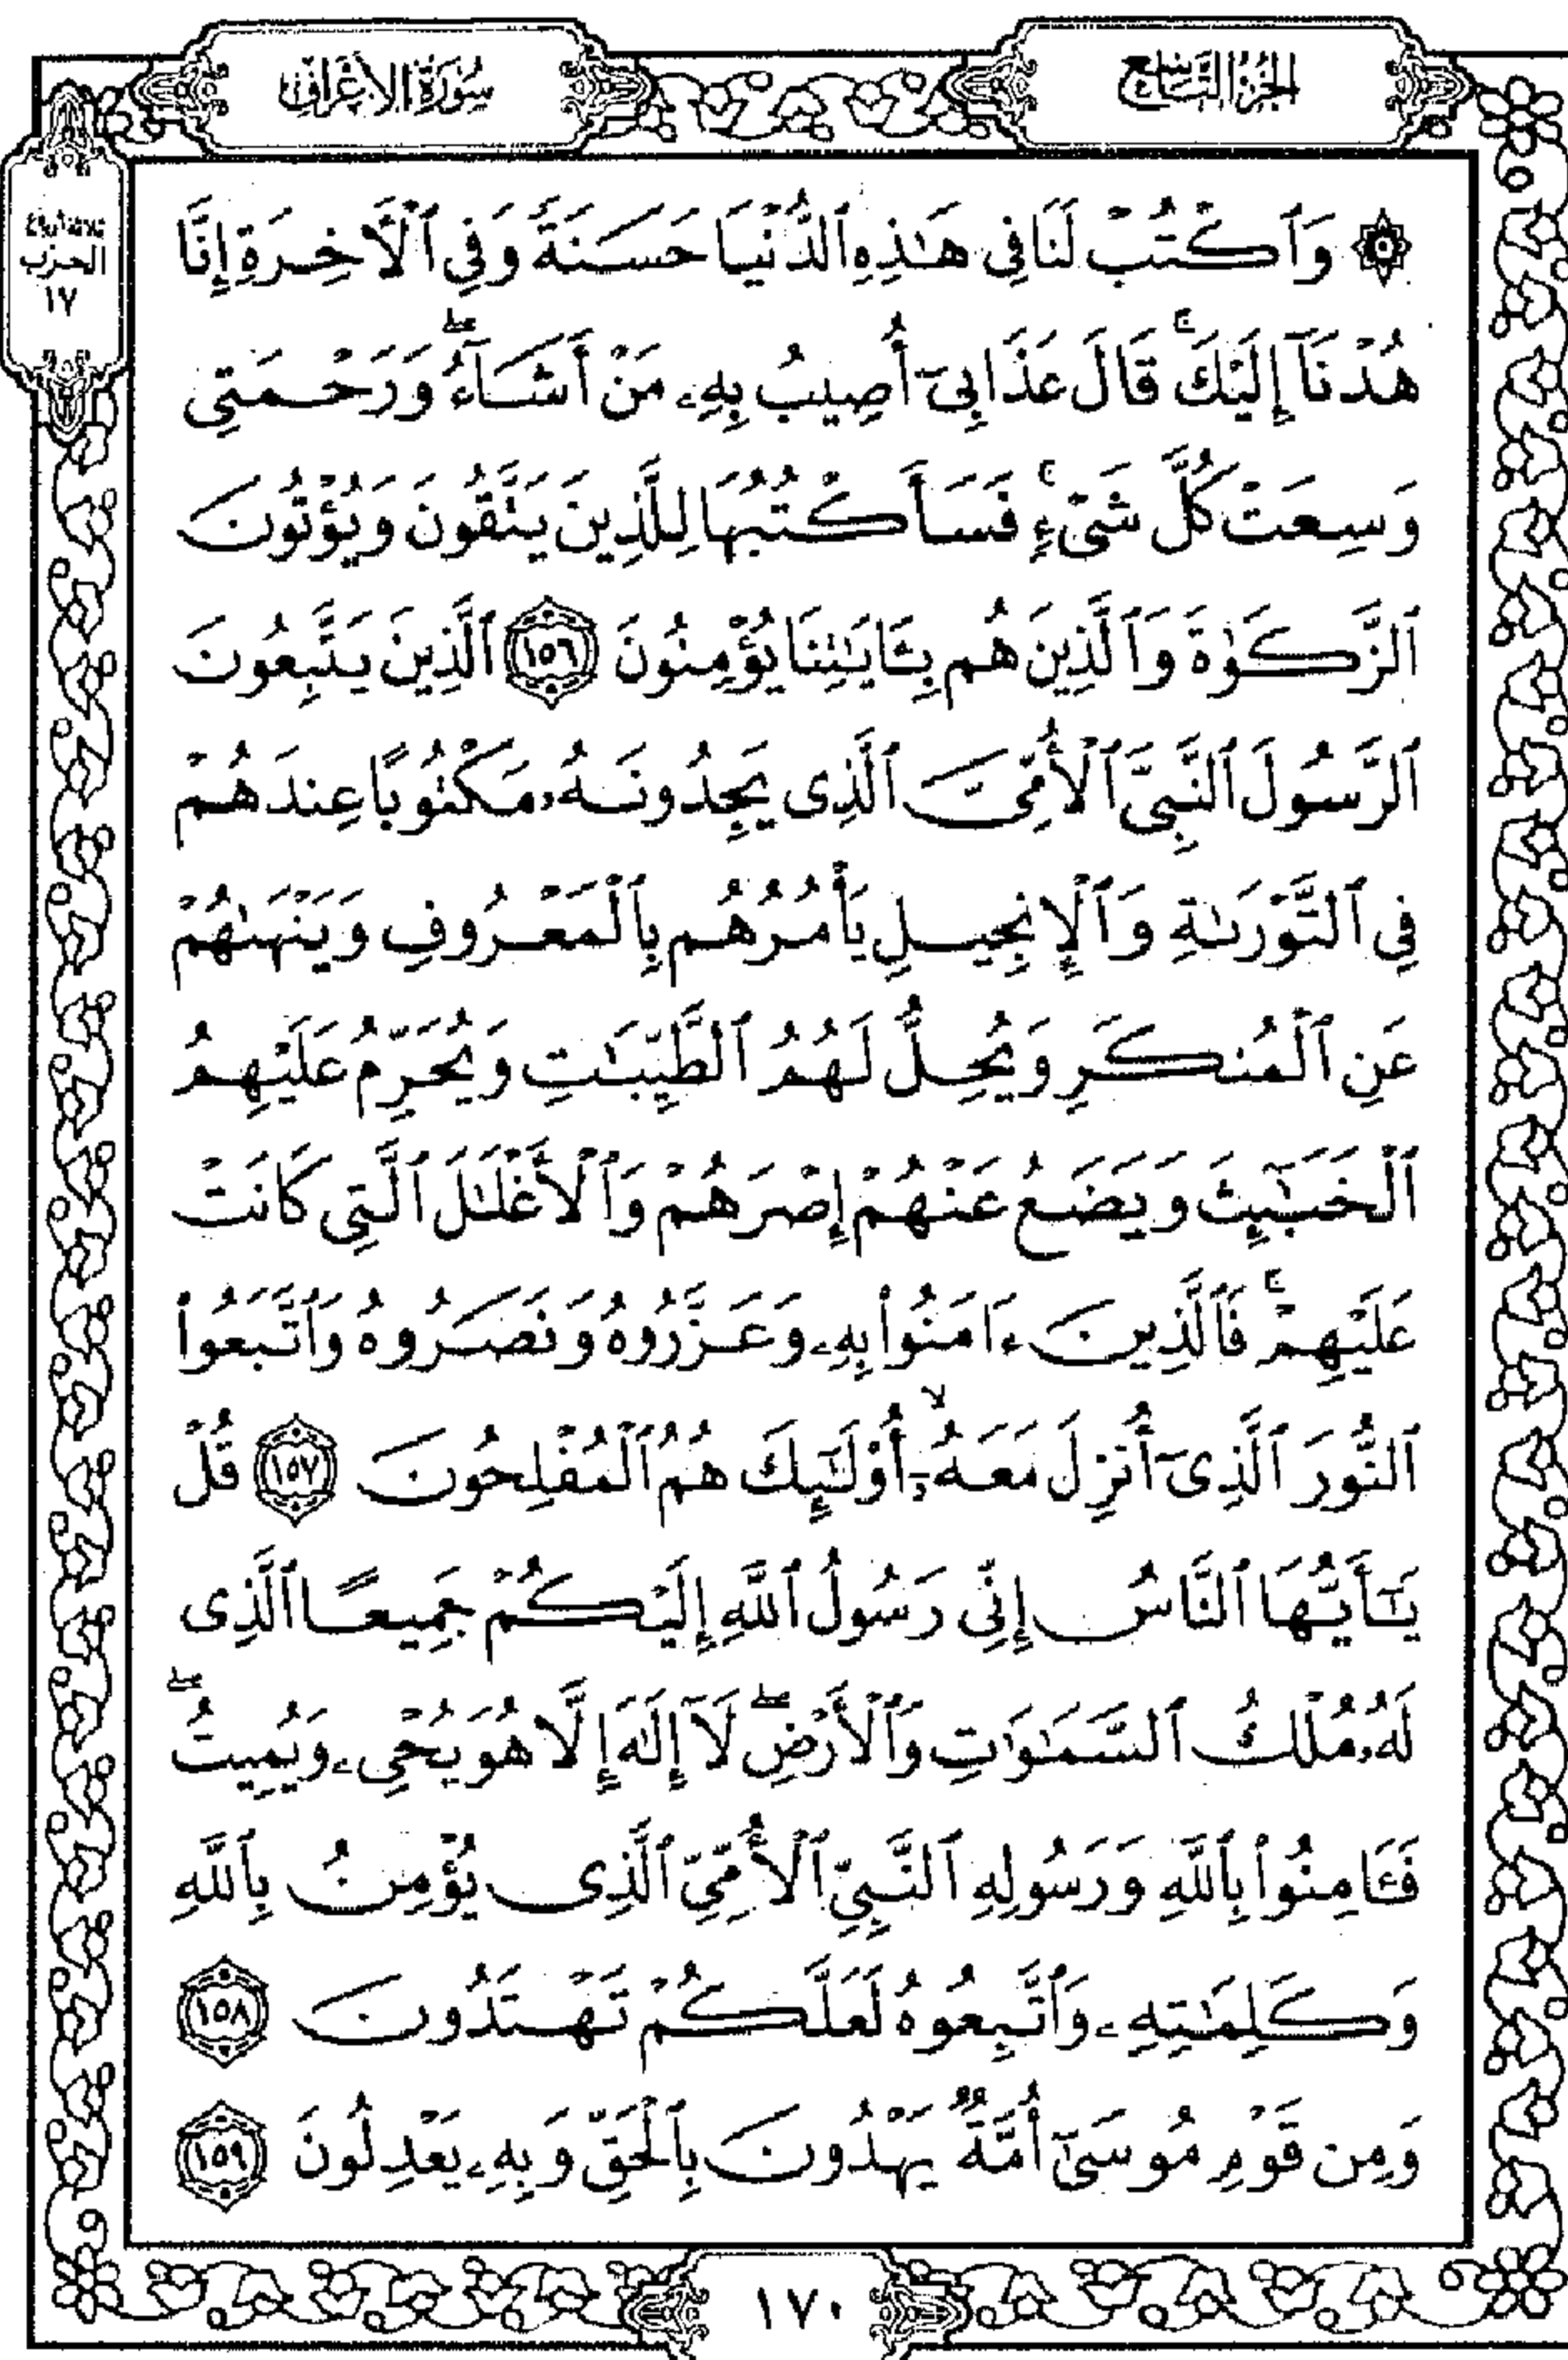 الجزء التاسع
سورة الأعراف
ثلاثة أرباع
الحزب
١٧
۞ وَٱكْتُبْ لَنَا فِى هَـٰذِهِ ٱلدُّنْيَا حَسَنَةً وَفِى ٱلْـَٔاخِرَةِ إِنَّا
هُدْنَآ إِلَيْكَ ۚ قَالَ عَذَابِىٓ أُصِيبُ بِهِۦ مَنْ أَشَآءُ ۖ وَرَحْمَتِى
وَسِعَتْ كُلَّ شَىْءٍ ۚ فَسَأَكْتُبُهَا لِلَّذِينَ يَتَّقُونَ وَيُؤْتُونَ
ٱلزَّكَوٰةَ وَٱلَّذِينَ هُم بِـَٔايَـٰتِنَا يُؤْمِنُونَ ١٥٦ ٱلَّذِينَ يَتَّبِعُونَ
ٱلرَّسُولَ ٱلنَّبِىَّ ٱلْأُمِّىَّ ٱلَّذِى يَجِدُونَهُۥ مَكْتُوبًا عِندَهُمْ
فِى ٱلتَّوْرَىٰةِ وَٱلْإِنجِيلِ يَأْمُرُهُم بِٱلْمَعْرُوفِ وَيَنْهَىٰهُمْ
عَنِ ٱلْمُنكَرِ وَيُحِلُّ لَهُمُ ٱلطَّيِّبَـٰتِ وَيُحَرِّمُ عَلَيْهِمُ
ٱلْخَبَـٰٓئِثَ وَيَضَعُ عَنْهُمْ إِصْرَهُمْ وَٱلْأَغْلَـٰلَ ٱلَّتِى كَانَتْ
عَلَيْهِمْ ۚ فَٱلَّذِينَ ءَامَنُوا۟ بِهِۦ وَعَزَّرُوهُ وَنَصَرُوهُ وَٱتَّبَعُوا۟
ٱلنُّورَ ٱلَّذِىٓ أُنزِلَ مَعَهُۥٓ ۙ أُو۟لَـٰٓئِكَ هُمُ ٱلْمُفْلِحُونَ ١٥٧ قُلْ
يَـٰٓأَيُّهَا ٱلنَّاسُ إِنِّى رَسُولُ ٱللَّهِ إِلَيْكُمْ جَمِيعًا ٱلَّذِى
لَهُۥ مُلْكُ ٱلسَّمَـٰوَٰتِ وَٱلْأَرْضِ ۖ لَآ إِلَـٰهَ إِلَّا هُوَ يُحْىِۦ وَيُمِيتُ ۖ
فَـَٔامِنُوا۟ بِٱللَّهِ وَرَسُولِهِ ٱلنَّبِىِّ ٱلْأُمِّىِّ ٱلَّذِى يُؤْمِنُ بِٱللَّهِ
وَكَلِمَـٰتِهِۦ وَٱتَّبِعُوهُ لَعَلَّكُمْ تَهْتَدُونَ ١٥٨
وَمِن قَوْمِ مُوسَىٰٓ أُمَّةٌ يَهْدُونَ بِٱلْحَقِّ وَبِهِۦ يَعْدِلُونَ ١٥٩
١٧٠